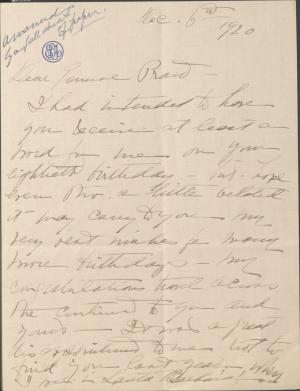 answered
Dec. 6th
1920
Dear General Pratt –
I had intended to have
you receive at least a
word from me on your
eightieth birthday – but I hope
even tho' a little belated
it may carry to you my
very best wishes for many
more birthdays – my
congratulations most across
the continent to you and
yours – It was a great
disappointment to me not to
find you last year – when
I was in Santa Barbara